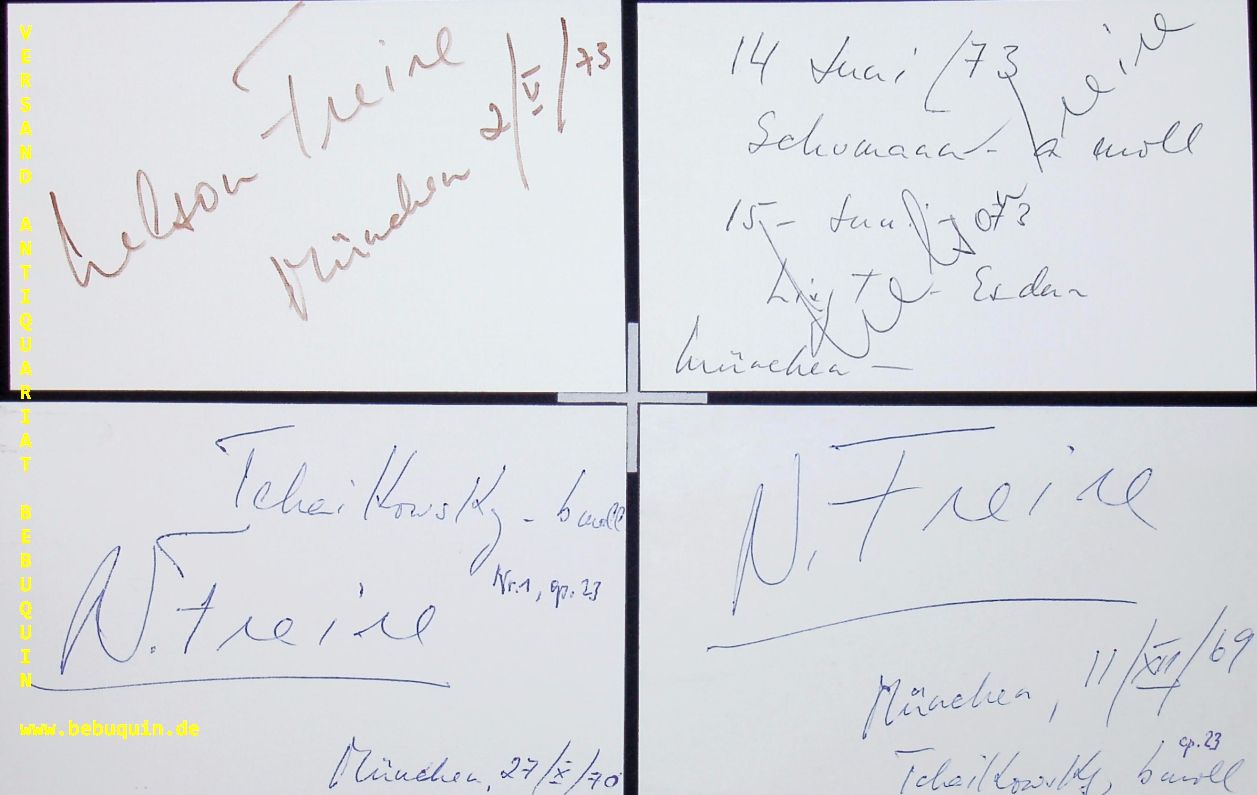 VERSAND ANTIQUARIAT BEBUQUIN
www.bebuquin.de
Nelson Freire
München 2/V/73
14 Juni /73
Schumann - a moll
15 - Juni - 073
Nelson Freire
München —
Tchaikowsky - b moll
Nr. 1, op. 23
N. Freire
München, 27/X/70
N. Freire
München, 11/XII/69
op. 23
Tchaikowsky, b moll